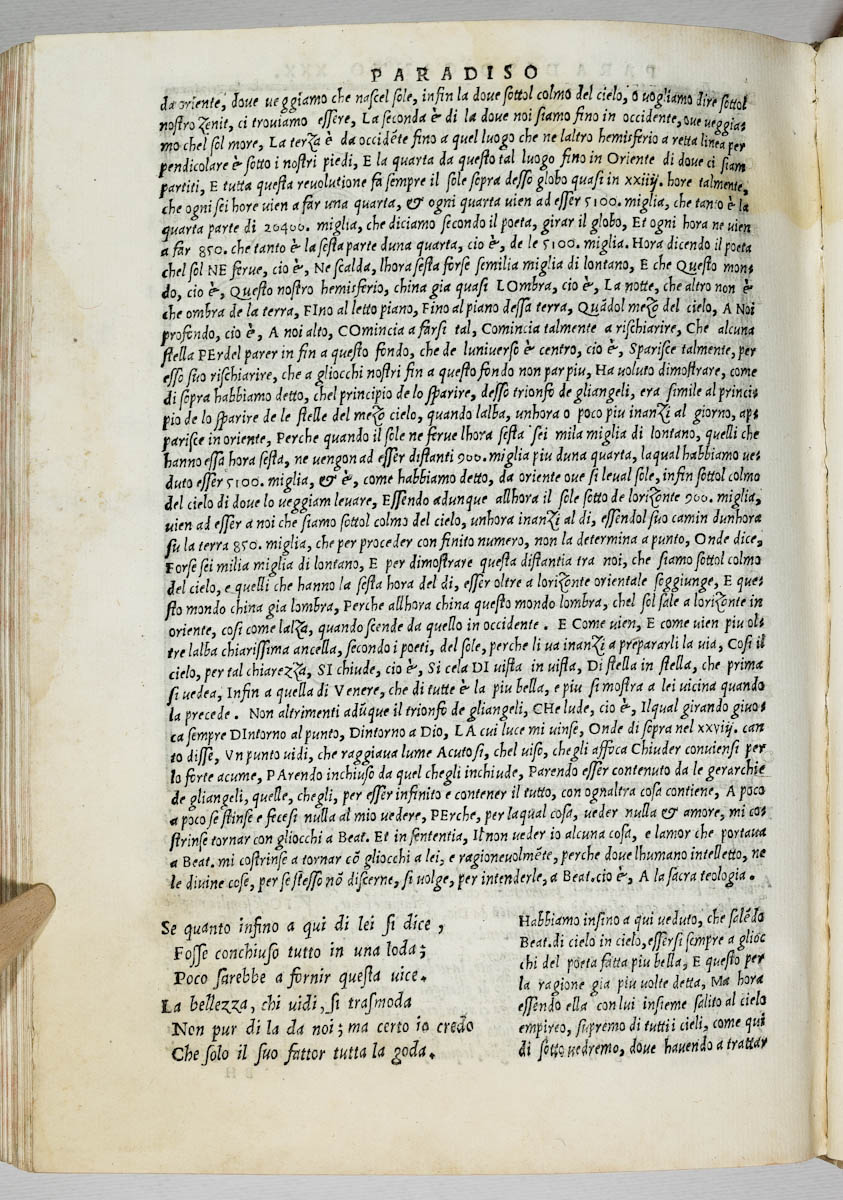 PARADISO
da oriente, dove ueggiamo che nascel sole, infin la dove sottol colmo del cielo, o vogliamo dire sottol
nostro Zenit, ci troviamo essere, La seconda è di la dove noi siamo fino in occidente, oue veggia-
mo chel sol more, La terza è da occidẽte fino a quel luogo che ne laltro hemisferio a retta linea per
pendicolare è sotto i nostri piedi, E la quarta da questo tal luogo fino in Oriente di dove ci siam
partiti, E tutta questa revolutione fa sempre il sole sopra desso globo quasi in xxiiij. hore talmente,
che ogni sei hore vien a far una quarta, & ogni quarta vien ad esser 5100. miglia, che tanto è la
quarta parte di 20400. miglia, che diciamo secondo il poeta, girar il globo, Et ogni hora ne vien
a far 850. che tanto è la sesta parte duna quarta, cio è, de le 5100. miglia. Hora dicendo il poeta
chel sol NE ferue, cio è, Ne scalda, lhora sesta forse semilia miglia di lontano, E che Questo mon-
do, cio è, Questo nostro hemisferio, china gia quasi LOmbra, cio è, La notte, che altro non è
che ombra de la terra, FIno al letto piano, Fino al piano dessa terra, Quãdol mezo del cielo, A Noi
profondo, cio è, A noi alto, COmincia a farsi tal, Comincia talmente a rischiarire, Che alcuna
stella PErdel parer in fin a questo fondo, che de luniverso è centro, cio è, Sparisce talmente, per
esso suo rischiarire, che a gliocchi nostri fin a questo fondo non par piu, Ha voluto dimostrare, come
di sopra habbiamo detto, chel principio de lo sparire, desso trionfo de gliangeli, era simile al princi-
pio de lo sparire de le stelle del mezo cielo, quando lalba, unhora o poco piu inanzi al giorno, ap-
parisce in oriente, Perche quando il sole ne ferue lhora sesta sei mila miglia di lontano, quelli che
hanno essa hora sesta, ne vengon ad esser distanti 900. miglia piu duna quarta, laqual habbiamo ve-
duto esser 5100. miglia, & è, come habbiamo detto, da oriente ove si leval sole, infin sottol colmo
del cielo di dove lo veggiam levare, Essendo adunque allhora il sole sotto de lorizonte 900. miglia,
vien ad esser a noi che siamo sottol colmo del cielo, unhora inanzi al di, essendol suo camin dunhora
su la terra 850. miglia, che per proceder con finito numero, non la determina a punto, Onde dice,
Forse sei milia miglia di lontano, E per dimostrare questa distantia tra noi, che siamo sottol colmo
del cielo, e quelli che hanno la sesta hora del di, esser oltre a lorizonte orientale soggiunge, E que-
sto mondo china gia lombra, Perche allhora china questo mondo lombra, chel sol sale a lorizonte in
oriente, cosi come lalza, quando scende da quello in occidente. E Come vien, E come vien piu ol-
tre lalba chiarissima ancella, secondo i poeti, del sole, perche li va inanzi a prepararli la via, Cosi il
cielo, per tal chiarezza, SI chiude, cio è, Si cela DI vista in vista, Di stella in stella, che prima
si vedea, Infin a quella di Venere, che di tutte è la piu bella, e piu si mostra a lei vicina quando
la precede. Non altrimenti adũque il trionfo de gliangeli, CHe lude, cio è, Ilqual girando giuo-
ca sempre DIntorno al punto, Dintorno a Dio, LA cui luce mi uinse, Onde di sopra nel xxviij. can
to disse, Vn punto vidi, che raggiava lume Acuto si, chel viso, chegli affoca Chiuder conviensi per
lo forte acume, PArendo inchiuso da quel chegli inchiude, Parendo esser contenuto da le gerarchie
de gliangeli, quelle, chegli, per esser infinito e contener il tutto, con ognaltra cosa contiene, A poco
a poco se stinse e fecesi nulla al mio vedere, PErche, per laqual cosa, veder nulla & amore, mi co-
strinse tornar con gliocchi a Beat. Et in sententia, Il non veder io alcuna cosa, e lamor che portava
a Beat. mi costrinse a tornar cõ gliocchi a lei, e ragionevolmẽte, perche dove lhumano intelletto, ne
le divine cose, per se stesso nõ discerne, si volge, per intenderle, a Beat. cio è, A la sacra teologia.
Se quanto infino a qui di lei si dice,
Fosse conchiuso tutto in una loda;
Poco sarebbe a fornir questa vice.
La bellezza, chi vidi, si trasmoda
Non pur di la da noi; ma certo io credo
Che solo il suo fattor tutta la goda.
Habbiamo insino a qui veduto, che salẽdo
Beat. di cielo in cielo, essersi sempre a glioc
chi del poeta fatta piu bella, E questo per
la ragione gia piu volte detta, Ma hora
essendo ella con lui insieme salito al cielo
empireo, supremo di tutti i cieli, come qui
di sotto vedremo, dove havendo a trattar